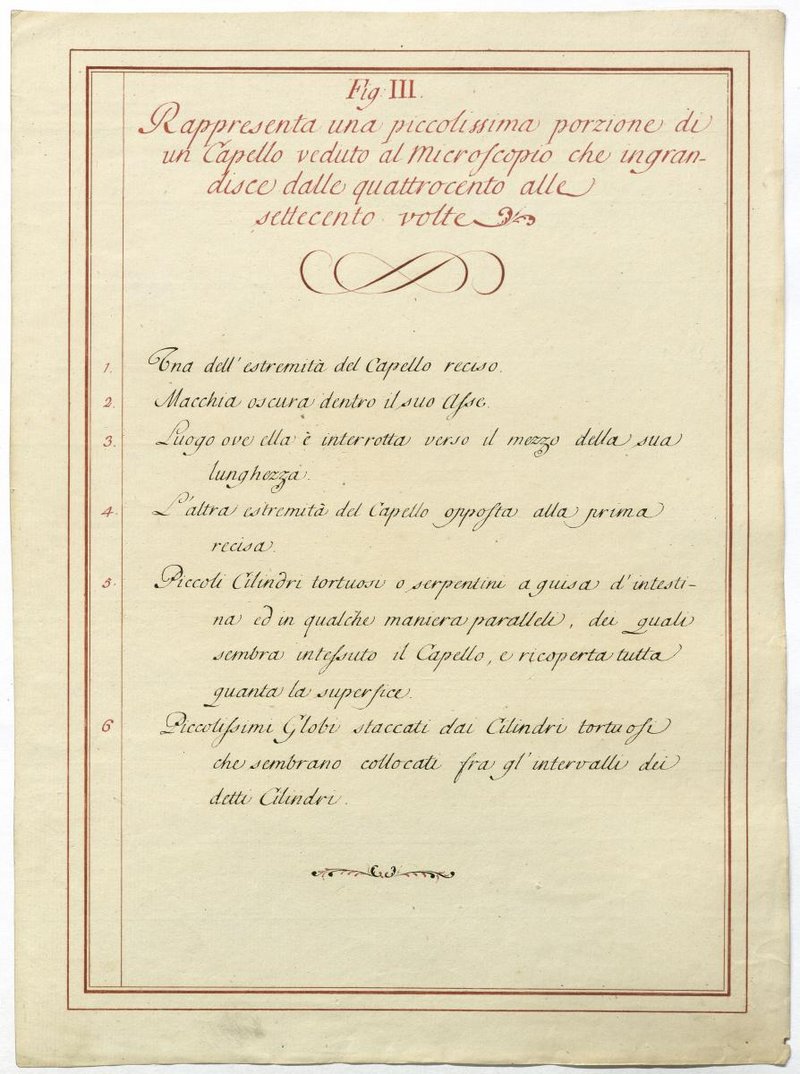 Fig. III.
Rappresenta una piccolissima porzione di
un Capello veduto al Microscopio che ingran-
disce dalle quattrocento alle
settecento volte
1. Una dell'estremità del Capello reciso.
2. Macchia oscura dentro il suo Asse.
3. Luogo ove ella è interrotta verso il mezzo della sua
lunghezza.
4. L'altra estremità del Capello opposta alla prima
recisa.
5. Piccoli Cilindri tortuosi o serpentini a guisa d'intesti-
na ed in qualche maniera paralleli, dei quali
sembra intessuto il Capello, e ricoperta tutta
quanta la superfice.
6 Piccolissimi Globi staccati dai Cilindri tortuosi
che sembrano collocati fra gl'intervalli dei
detti Cilindri.